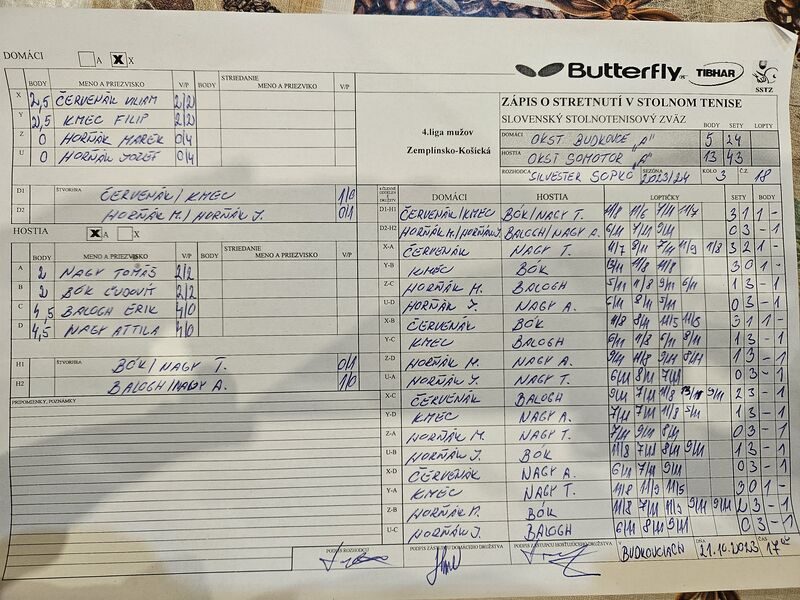 DOMÁCI A X X
Butterfly TIBHAR SSTZ
BODY MENO A PRIEZVISKO V/P BODY STRIEDANIE MENO A PRIEZVISKO V/P
X 2,5 ČERVENÁK VILIAM 2/2
Y 2,5 KMEC FILIP 2/2
Z 0 HORŇÁK MAREK 0/4
U 0 HORŇÁK JOZEF 0/4
4.liga mužov
Zemplínsko-Košická
ZÁPIS O STRETNUTÍ V STOLNOM TENISE
SLOVENSKÝ STOLNOTENISOVÝ ZVÄZ BODY SETY LOPTY
DOMÁCI OKST BUDKOVCE "A" 5 24
HOSTIA OKST SOMOTOR "A" 13 43
ROZHODCA SILVESTER SOPKO SEZÓNA 2023/24 KOLO 3 Č.Z. 18
D1 ŠTVORHRA ČERVENÁK/KMEC 1/0
D2 HORŇÁK M./HORŇÁK J. 0/1
HOSTIA A X X
BODY MENO A PRIEZVISKO V/P BODY STRIEDANIE MENO A PRIEZVISKO V/P
A 2 NAGY TOMÁŠ 2/2
B 2 BÓK ĽUDOVÍT 2/2
C 4,5 BALOGH ERIK 4/0
D 4,5 NAGY ATTILA 4/0
H1 ŠTVORHRA BÓK/NAGY T. 0/1
H2 BALOGH/NAGY A. 1/0
PRIPOMIENKY, POZNÁMKY
DOMÁCI HOSTIA LOPTIČKY SETY BODY
D1-H1 ČERVENÁK/KMEC BÓK/NAGY T. 3 1 1 -
D2-H2 HORŇÁK M./HORŇÁK J. BALOGH/NAGY A. 6/11 7/11 9/11 0 3 - 1
X-A ČERVENÁK NAGY T. 3 2 1 -
Y-B KMEC BÓK 3 0 1 -
Z-C HORŇÁK M. BALOGH 5/11 11/8 9/11 6/11 1 3 - 1
U-D HORŇÁK J. NAGY A. 6/11 8/11 5/11 0 3 - 1
X-B ČERVENÁK BÓK 11/8 8/11 11/5 11/8 3 1 1 -
Y-C KMEC BALOGH 6/11 11/8 6/11 8/11 1 3 - 1
Z-D HORŇÁK M. NAGY A. 1 3 - 1
U-A HORŇÁK J. NAGY T. 6/11 8/11 7/11 0 3 - 1
X-C ČERVENÁK BALOGH 2 3 - 1
Y-D KMEC NAGY A. 7/11 7/11 11/8 5/11 1 3 - 1
Z-A HORŇÁK M. NAGY T. 7/11 9/11 8/11 0 3 - 1
U-B HORŇÁK J. BÓK 11/8 7/11 8/11 9/11 1 3 - 1
X-D ČERVENÁK NAGY A. 6/11 7/11 9/11 0 3 - 1
Y-A KMEC NAGY T. 11/8 11/9 11/5 3 0 1 -
Z-B HORŇÁK M. BÓK 11/8 7/11 11/9 9/11 9/11 2 3 - 1
U-C HORŇÁK J. BALOGH 6/11 8/11 9/11 0 3 - 1
PODPIS ROZHODCU PODPIS ZÁSTUPCU DOMÁCEHO DRUŽSTVA PODPIS ZÁSTUPCU HOSŤUJÚCEHO DRUŽSTVA V BUDKOVCIACH DŇA 21.10.2023 ČAS 17